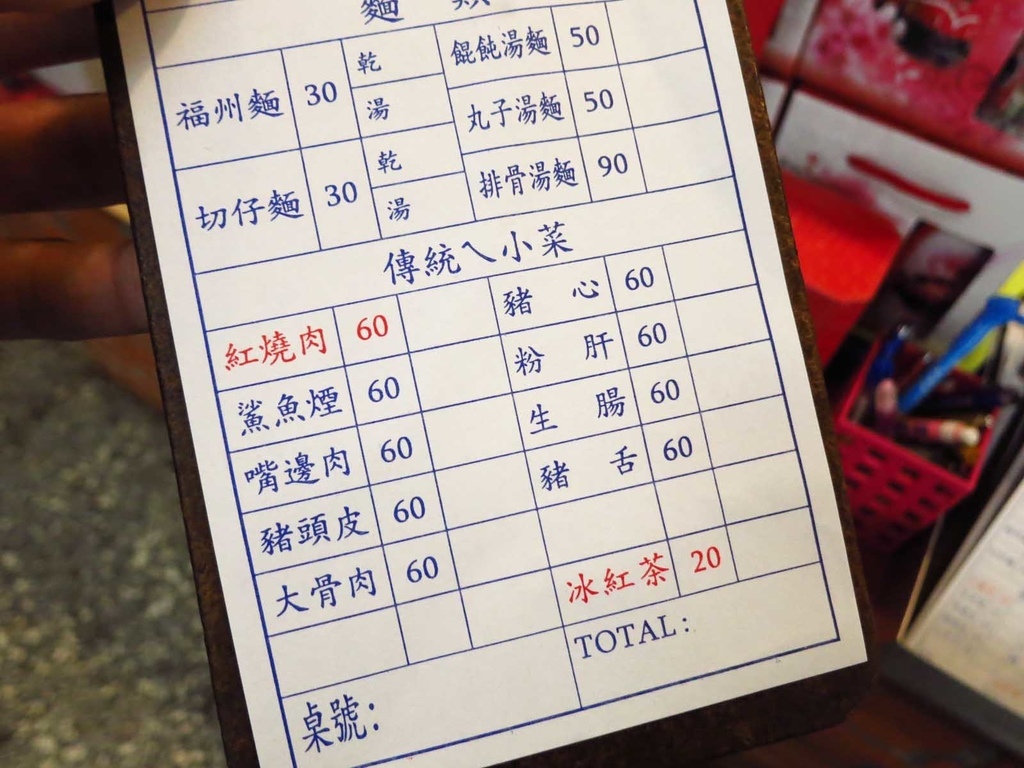 麵 類
福州麵 30 乾 湯 餛飩湯麵 50
丸子湯麵 50
切仔麵 30 乾 湯 排骨湯麵 90
傳統ㄟ小菜
紅燒肉 60 豬 心 60
鯊魚煙 60 粉 肝 60
嘴邊肉 60 生 腸 60
豬頭皮 60 豬 舌 60
大骨肉 60
冰紅茶 20
桌號: TOTAL: